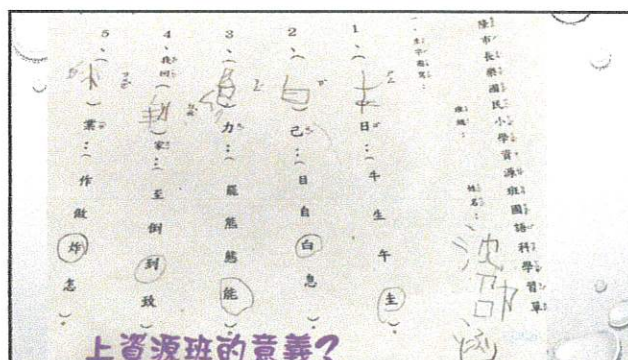 隆市長樂國民小學資源班國語科學習單
班級： 姓名：沈
1、（ ）日：（牛 生 午 主）
2、（白）己：（目 自 白 息）
3、（ ）力：（罷 熊 態 能）
4、我回（ ）家：（至 倒 到 致）
5、（ ）業：（作 做 炸 怎）
上資源班的意義？